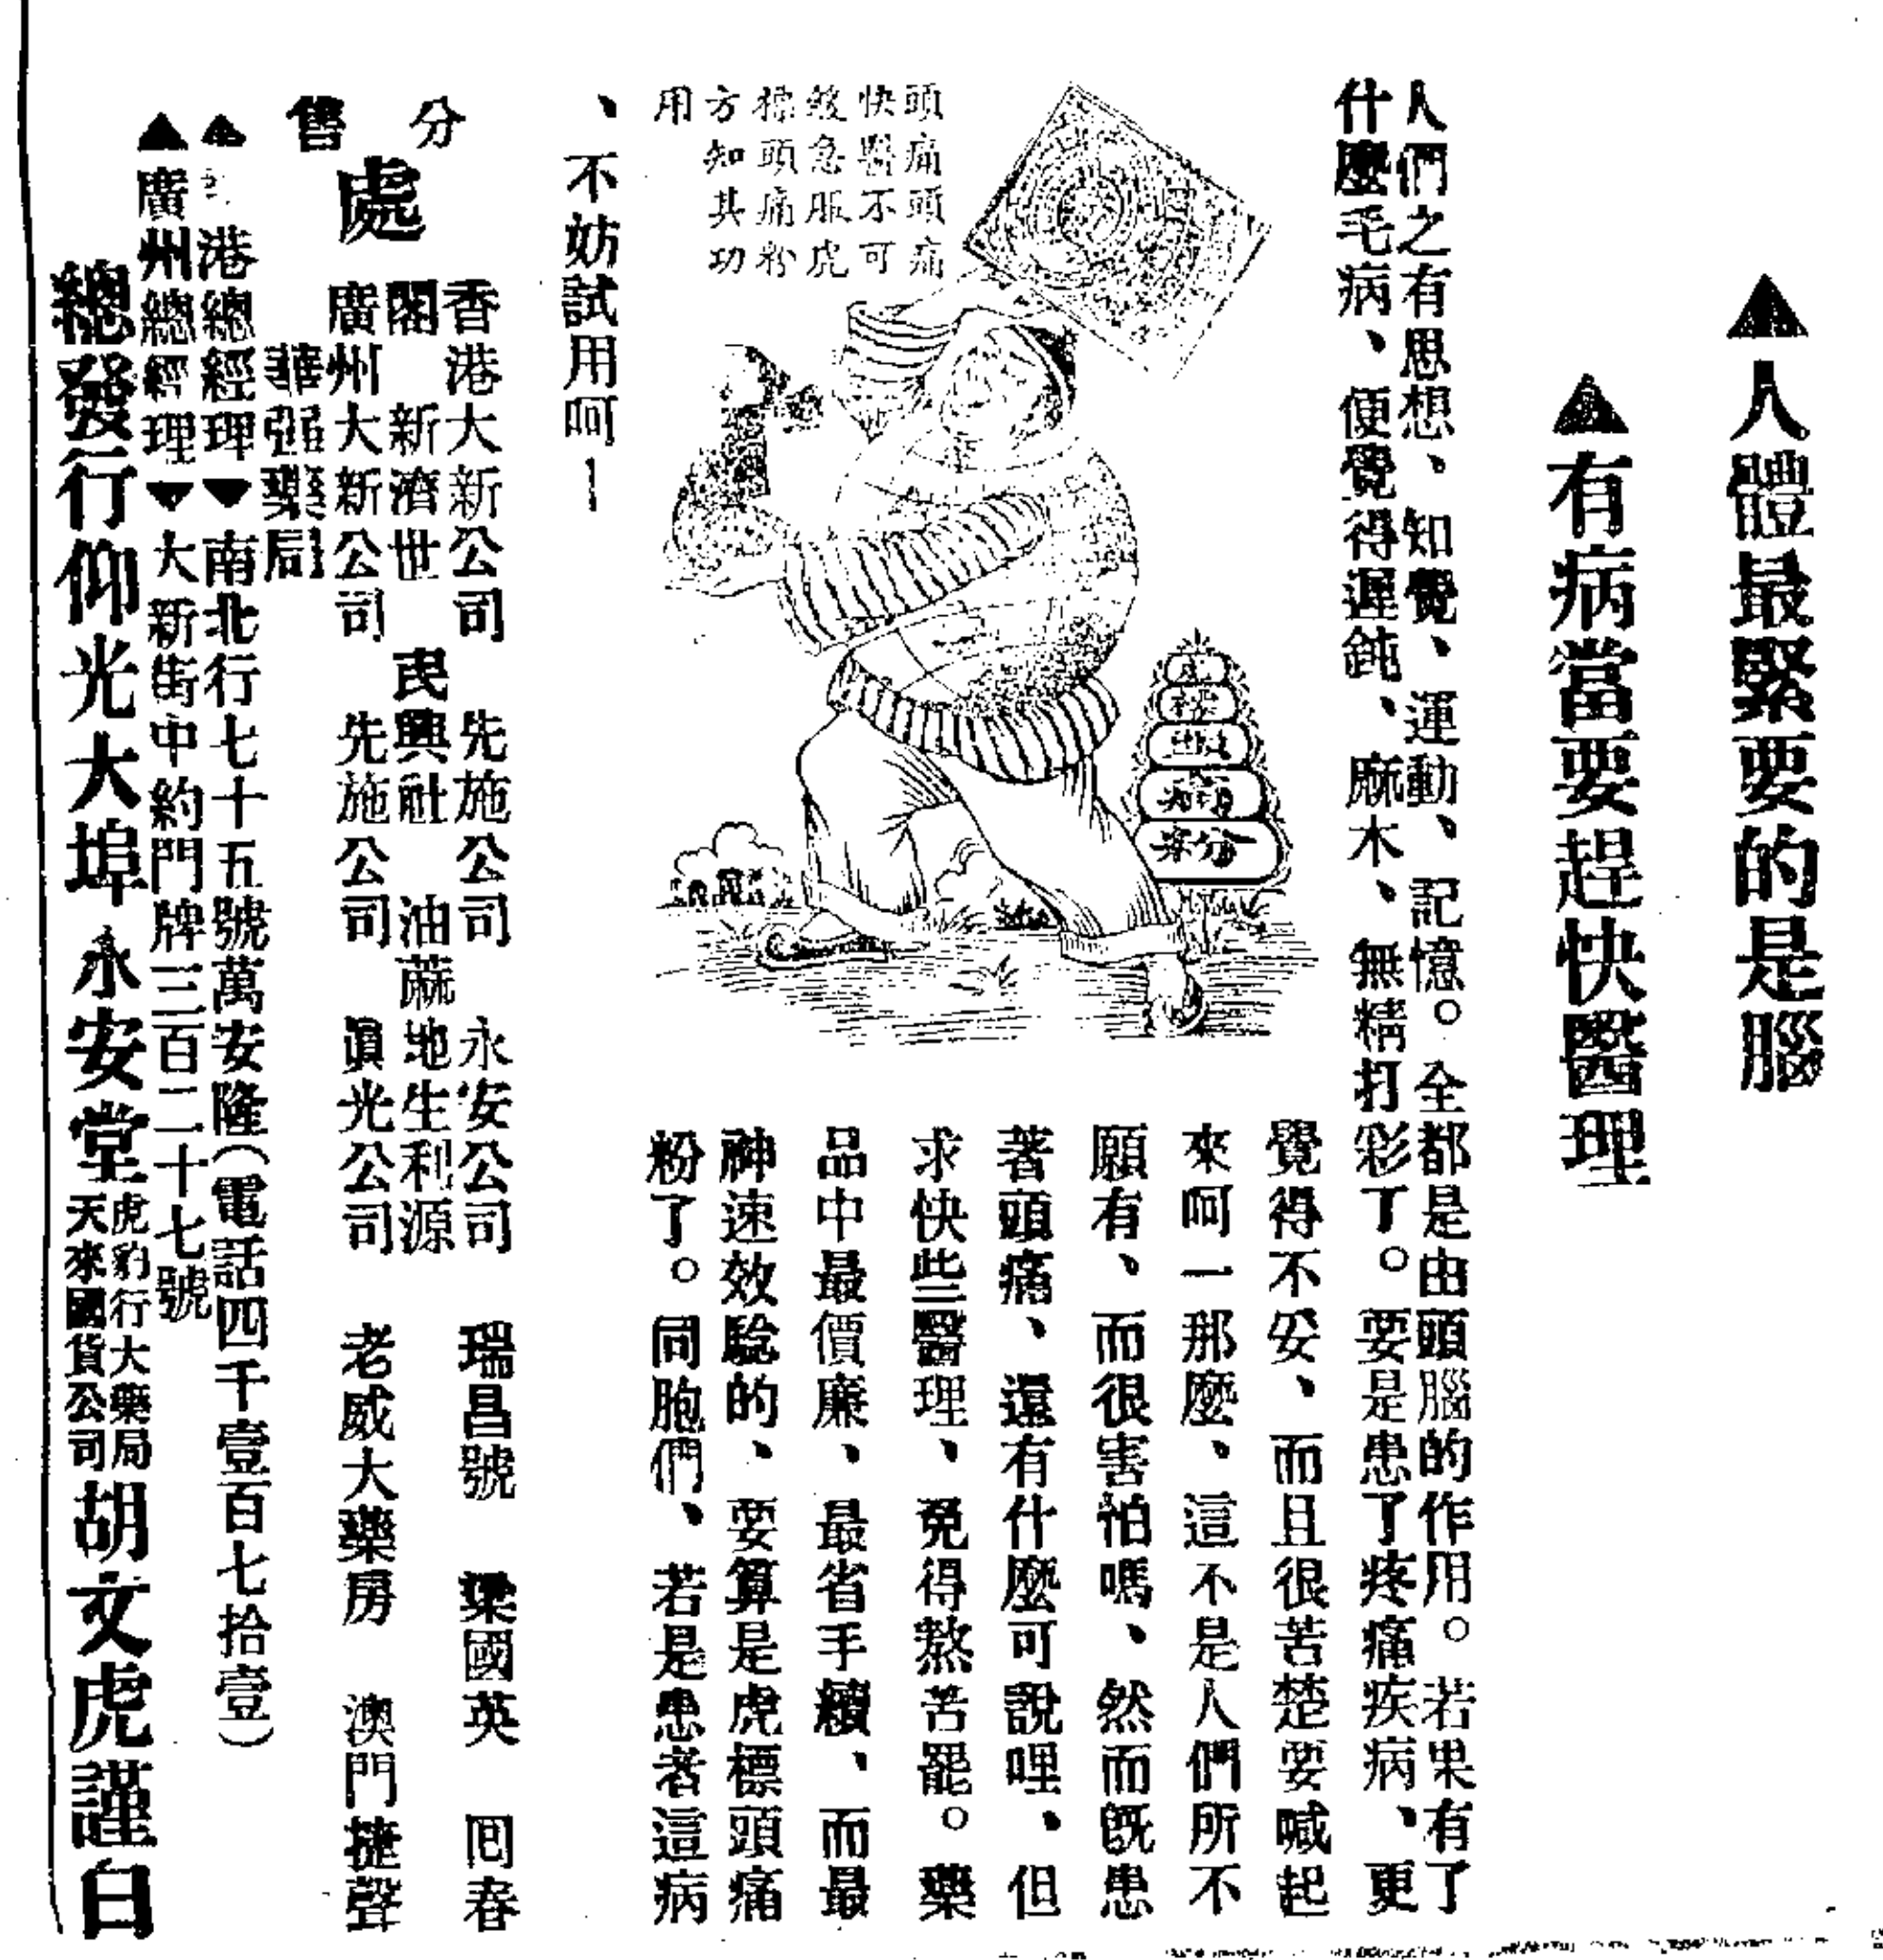 ▲人體最緊要的是腦
▲有病當要趕快醫理
人們之有思想、知覺、運動、記憶。全都是由頭腦的作用。若果有了
什麼毛病、便覺得遲鈍、麻木、無精打彩了。要是患了疼痛疾病、更
覺得不妥、而且很苦楚要喊起
來呵一那麼、這不是人們所不
願有、而很害怕嗎、然而既患
著頭痛、還有什麼可說哩、但
求快些醫理、免得熬苦罷。藥
品中最價廉、最省手續、而最
神速效驗的、要算是虎標頭痛
粉了。同胞們、若是患者這病
、不妨試用呵！
頭痛頭痛
快醫不可
緩急服虎
標頭痛粉
方知其功
用
分售處
香港大新公司 先施公司 永安公司 瑞昌號 梁國英 囘春
閣 新濟世 民興社 油蔴地生利源
廣州大新公司 先施公司 眞光公司 老威大藥房 澳門捷聲
華强藥局
▲港總經理▼南北行七十五號萬安隆（電話四千壹百七拾壹）
▲廣州總經理▼大新街中約門牌三百二十七號
總發行仰光大埠永安堂虎豹行大藥局
天來國貨公司胡文虎謹白